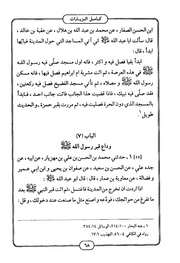 كامل الزيارات
ابن الحسن الصفار، عن محمد بن عبد الله بن هلال، عن عقبة بن خالد،
قال: سألت أبا عبد الله ﷺ أني آتي المساجد التي حول المدينة فبأيها
ابدأ، فقال:
ابدأ بقبا فصل فيه وأكثر، فانه أول مسجد صلّى فيه رسول الله
ﷺ في هذه العرصة، ثم ائت مشربة ام ابراهيم فصل فيها، فانه مسكن
رسول الله ﷺ ومصلاه، ثم تأتي مسجد الفضيخ فصل فيه ركعتين،
فقد صلّى فيه نبيك، فاذا قضيت هذا الجانب فائت جانب احد، فابدأ
بالمسجد الذي دون الحرة فصليت فيه، ثم مررت بقبر حمزة، والحديث
طويل
الباب (٧)
وداع قبر رسول الله ﷺ
حدثني محمد بن الحسن بن علي بن مهزيار، عن ابيه، عن
جده علي بن مهزيار، عن الحسين بن سعيد، عن صفوان بن يحيى وابن أبي عمير
وفضالة، عن معاوية بن عمار، قال: قال ابو عبد الله
اذا اردت ان تخرج من المدينة فاغتسل، ثم ائت قبر النبي ﷺ بعد
ما تفرغ من حوائجك، فودّعه واصنع مثل ما صنعت عند دخولك، وقل:
٦٨